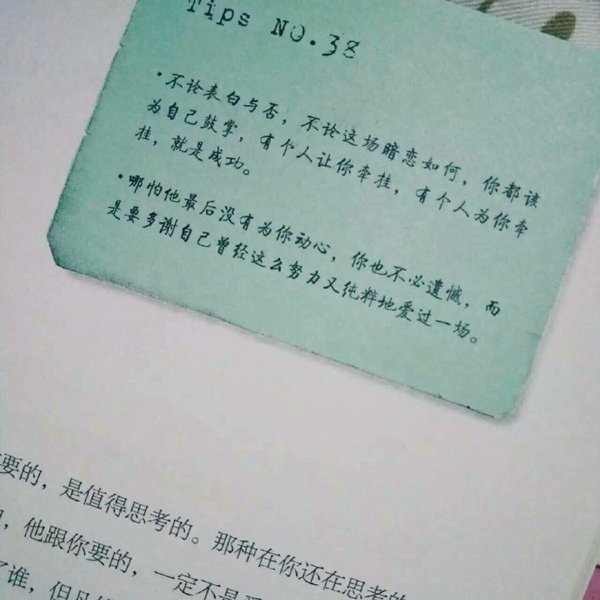 Tips NO.38
·不论表白与否，不论这场暗恋如何，你都该
为自己鼓掌，有个人让你牵挂，有个人为你牵
挂，就是成功。
·哪怕他最后没有为你动心，你也不必遗憾，而
是要多谢自己曾经这么努力又纯粹地爱过一场。
要的，是值得思考的。那种在你还在思考的
，他跟你要的，一定不是
谁，但凡